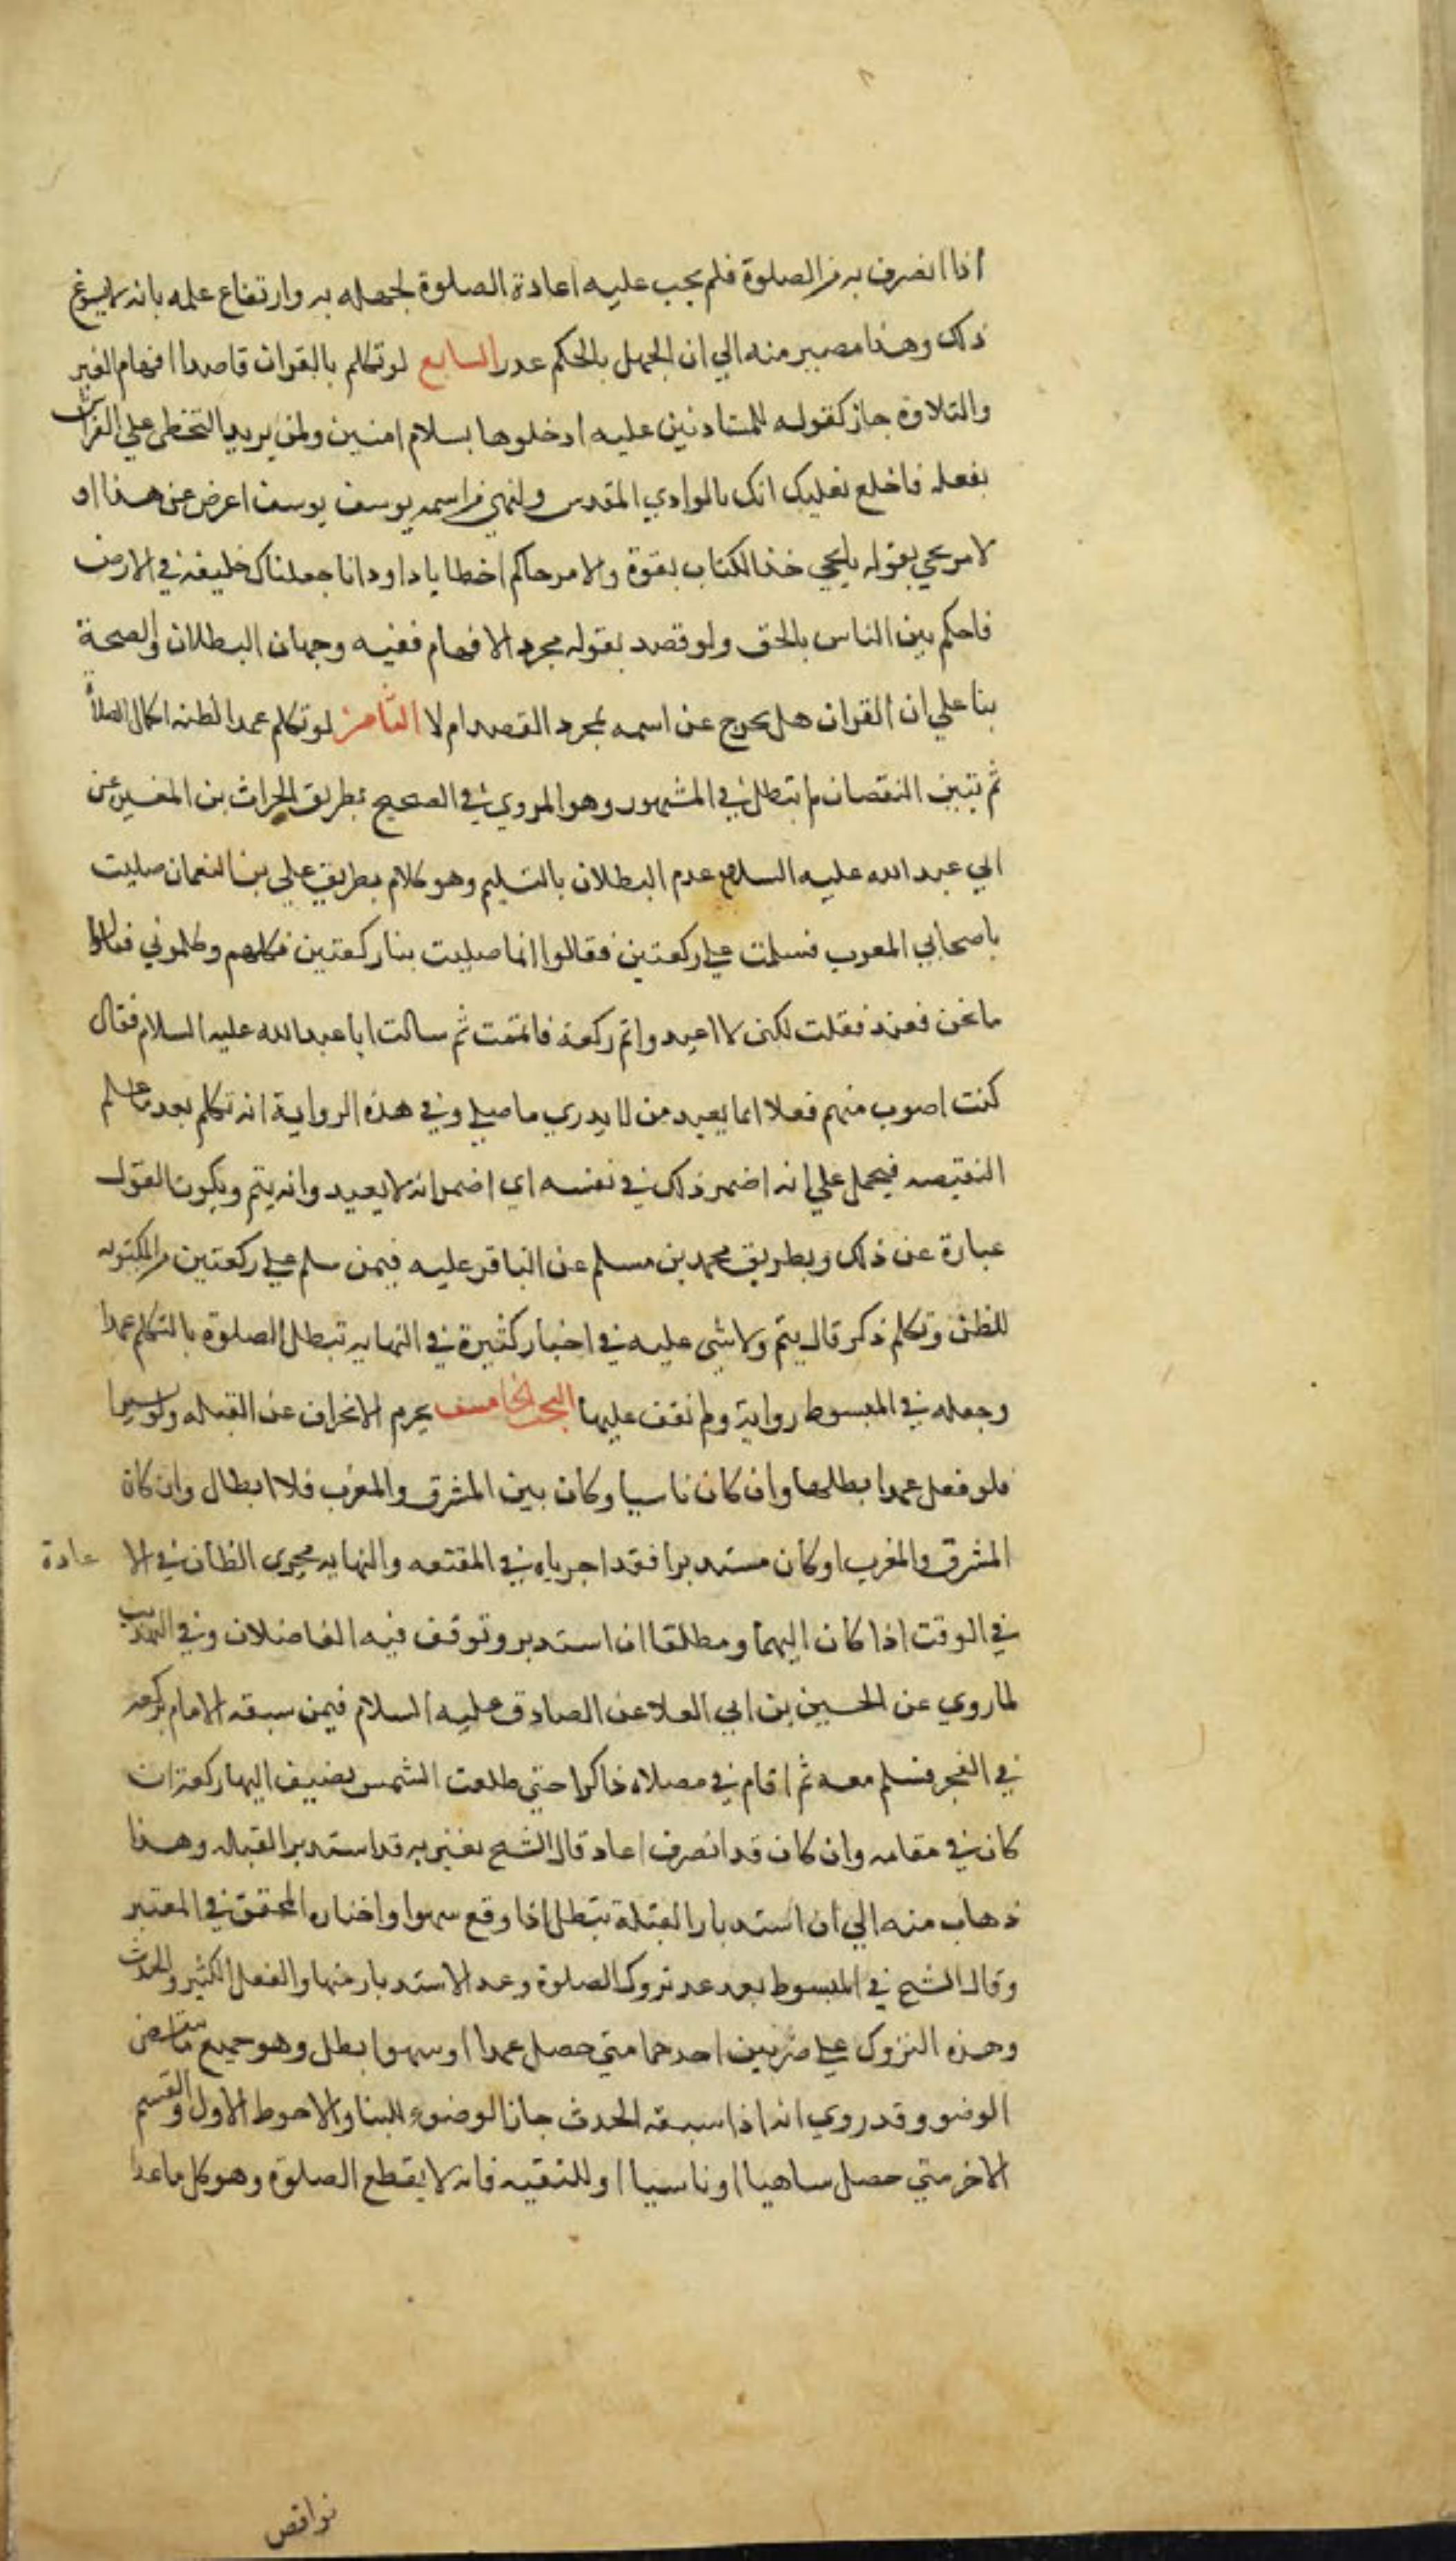 اذا انصرف به من الصلوة فلم يجب عليه اعادة الصلوة لجهله به وارتفاع علمه بانه لا يسوغ
ذلك وهذا مصير منه الي ان الجهل بالحكم عذر السابع لو تكلم بالقران قاصدا افهام الغير
والتلاوة جاز كقوله للمستاذنين عليه ادخلوها بسلام امنين ولمن يريد التخطي علي الفراش
بفعله فاخلع نعليك انك بالوادي المقدس ولنهي من اسمه يوسف يوسف اعرض عن هذا او
لامر يحيي بقوله يايحيي خذ الكتاب بقوة ولامر حاكم اخطا ياداود انا جعلناك خليفة في الارض
فاحكم بين الناس بالحق ولو قصد بقوله مجرد الافهام ففيه وجهان البطلان والصحة
بنا علي ان القران هل يخرج عن اسمه بمجرد القصد ام لا الثامن لو تكلم عمدا لظنه اكمال الصلاة
ثم تبين النقصان لم تبطل في المشهور وهو المروي في الصحيح بطريق الحراث بن المغيره عن
ابي عبد الله عليه السلام عدم البطلان بالتسليم وهو كلام بطريق علي بن النعمان صليت
باصحابي المغرب فسلمت علي ركعتين فقالوا انما صليت بنا ركعتين فكلمتهم وكلموني فقالوا
ما نحن فعند فقلت لكني لا اعيد واتم ركعة فاتممت ثم سالت ابا عبد الله عليه السلام فقال
كنت اصوب منهم فعلا انما يعيد من لا يدري ما صلي وفي هذه الرواية انه تكلم بعد ما علم
النقيصه فيحمل علي انه اضمر ذلك في نفسه اي اضمر انه لا يعيد وانه يتم ويكون القول
عبارة عن ذلك وبطريق محمد بن مسلم عن الباقر عليه فيمن سلم علي ركعتين من المكتوبه
للظن وتكلم ذكر قال يتم ولا شي عليه في اخبار كثيرة في النهايه تبطل الصلوة بالتكلم عمدا
وجعله في المبسوط رواية ولم نقف عليها البحث الخامس يحرم الانحراف عن القبله ولو يسيرا
فلو فعل عمدا بطلها وان كان ناسيا وكان بين المشرق والمغرب فلا ابطال وان كان
المشرق والمغرب او كان مستدبرا فقد اجرياه في المقنعه والنهايه مجري الظان في الا عادة
في الوقت اذا كان اليهما ومطلقا ان استدبر وتوقف فيه الفاضلان وفي التهذيب
لما روي عن الحسين بن ابي العلا عن الصادق عليه السلام فيمن سبقه الامام بركعه
في الفجر فسلم معه ثم اقام في مصلاه ذاكرا حتي طلعت الشمس يضيف اليها ركعة ان
كان في مقامه وان كان قد انصرف اعاد قال الشيخ يعني به قد استدبر القبله وهذا
ذهاب منه الي ان استدبار القبلة تبطل اذا وقع سهوا واختاره المحقق في المعتبر
وقال الشيخ في المبسوط بعد عد تروك الصلوة وعد الاستدبار منها والفعل الكثير والحدث
وهذه التروك علي ضربين احدهما متي حصل عمدا او سهوا بطل وهو جميع نواقض
الوضو وقد روي انه اذا سبقه الحدث جاز الوضوء للبنا والاحوط الاول والقسم
الاخر متي حصل ساهيا او ناسيا او للتقيه فانه لا يقطع الصلوة وهو كل ما عدا
نواقض